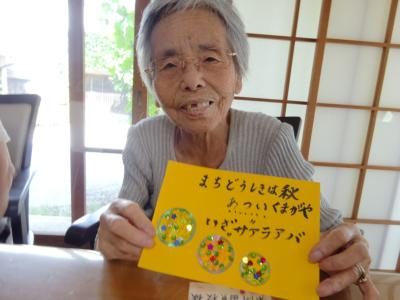 まちどうしきは秋
あついくまがや
いざサアラアバ